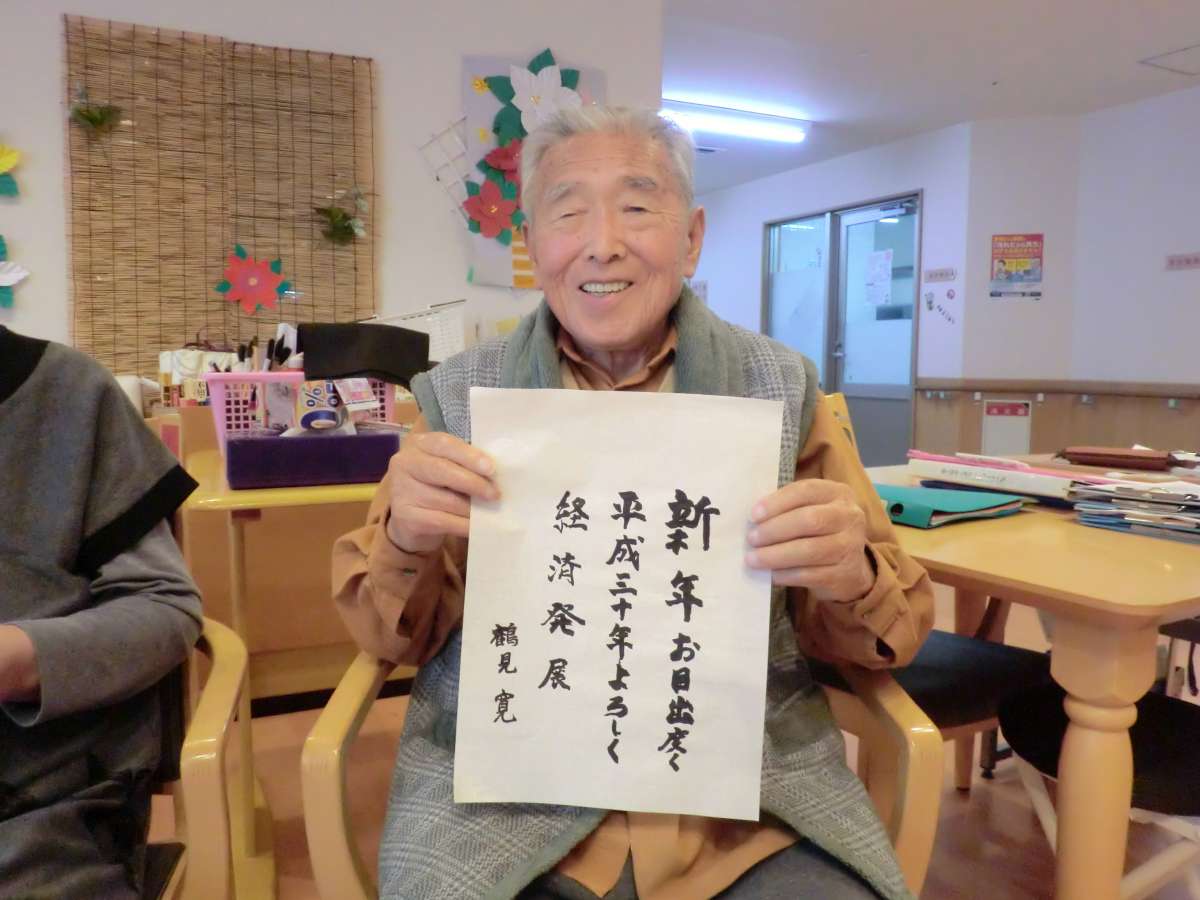 新年お目出度く
平成三十年よろしく
経済発展
鶴見 寛